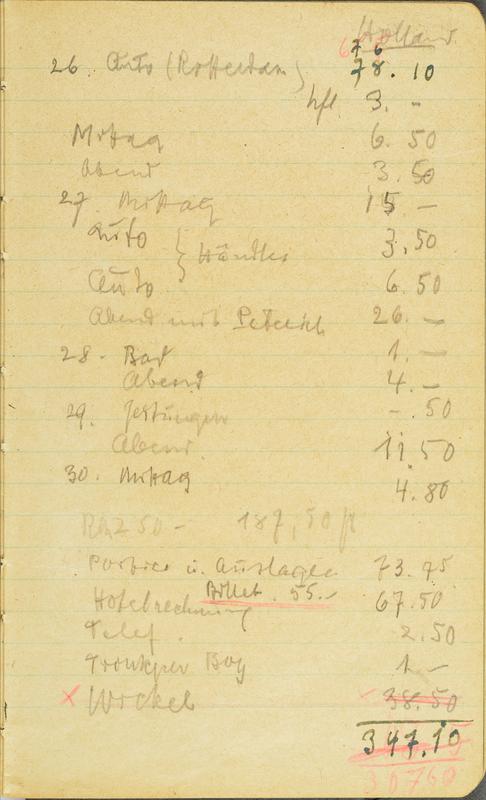 Holland.
26. Auto (Rotterdam) 78.10
hfl 3.-
Mittag 6.50
Abend 3.50
27 Mittag 15 -
Auto 3.50
Händler
Auto 6.50
Abend mit 26. -
28. Bad 1. -
Abend 4. -
29. Zeitungen -.50
Abend. 11.50
30. Mittag 4.80
250 - 187,50 fl
Portier u. Auslagen 73.75
Billet. 55.-
Hotelrechnung 67.50
Telef. 2.50
Boy 1.-
x 38.50
347.10
30760